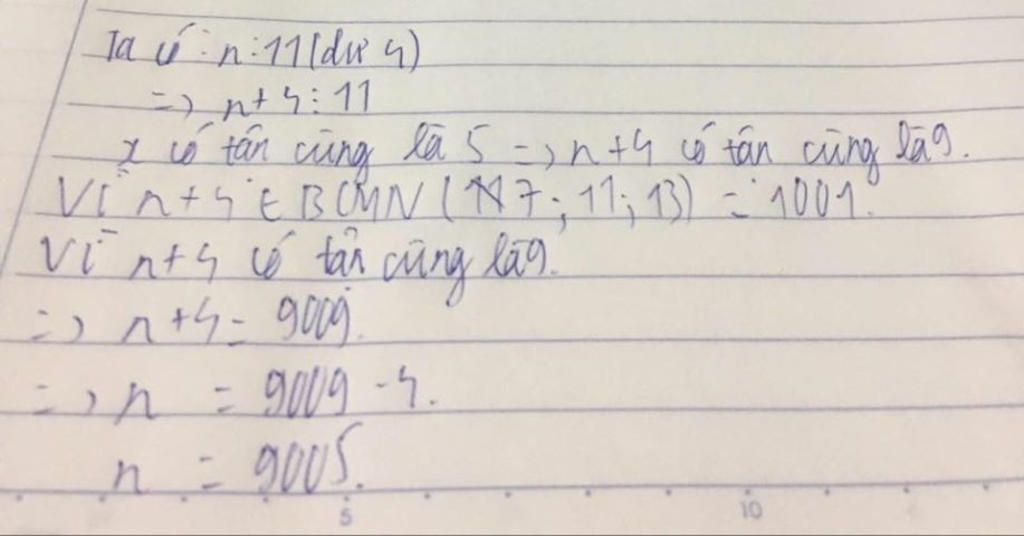 Ta có: n:11(dư 4)
=> n+4⋮11
x có tận cùng là 5 => n+4 có tận cùng là 9.
Vì n+4 ∈ BCNN(7;11;13) = 1001.
Vì n+4 có tận cùng là 9.
=> n+4= 9009.
=> n = 9009 -4.
n = 9005.
5 10